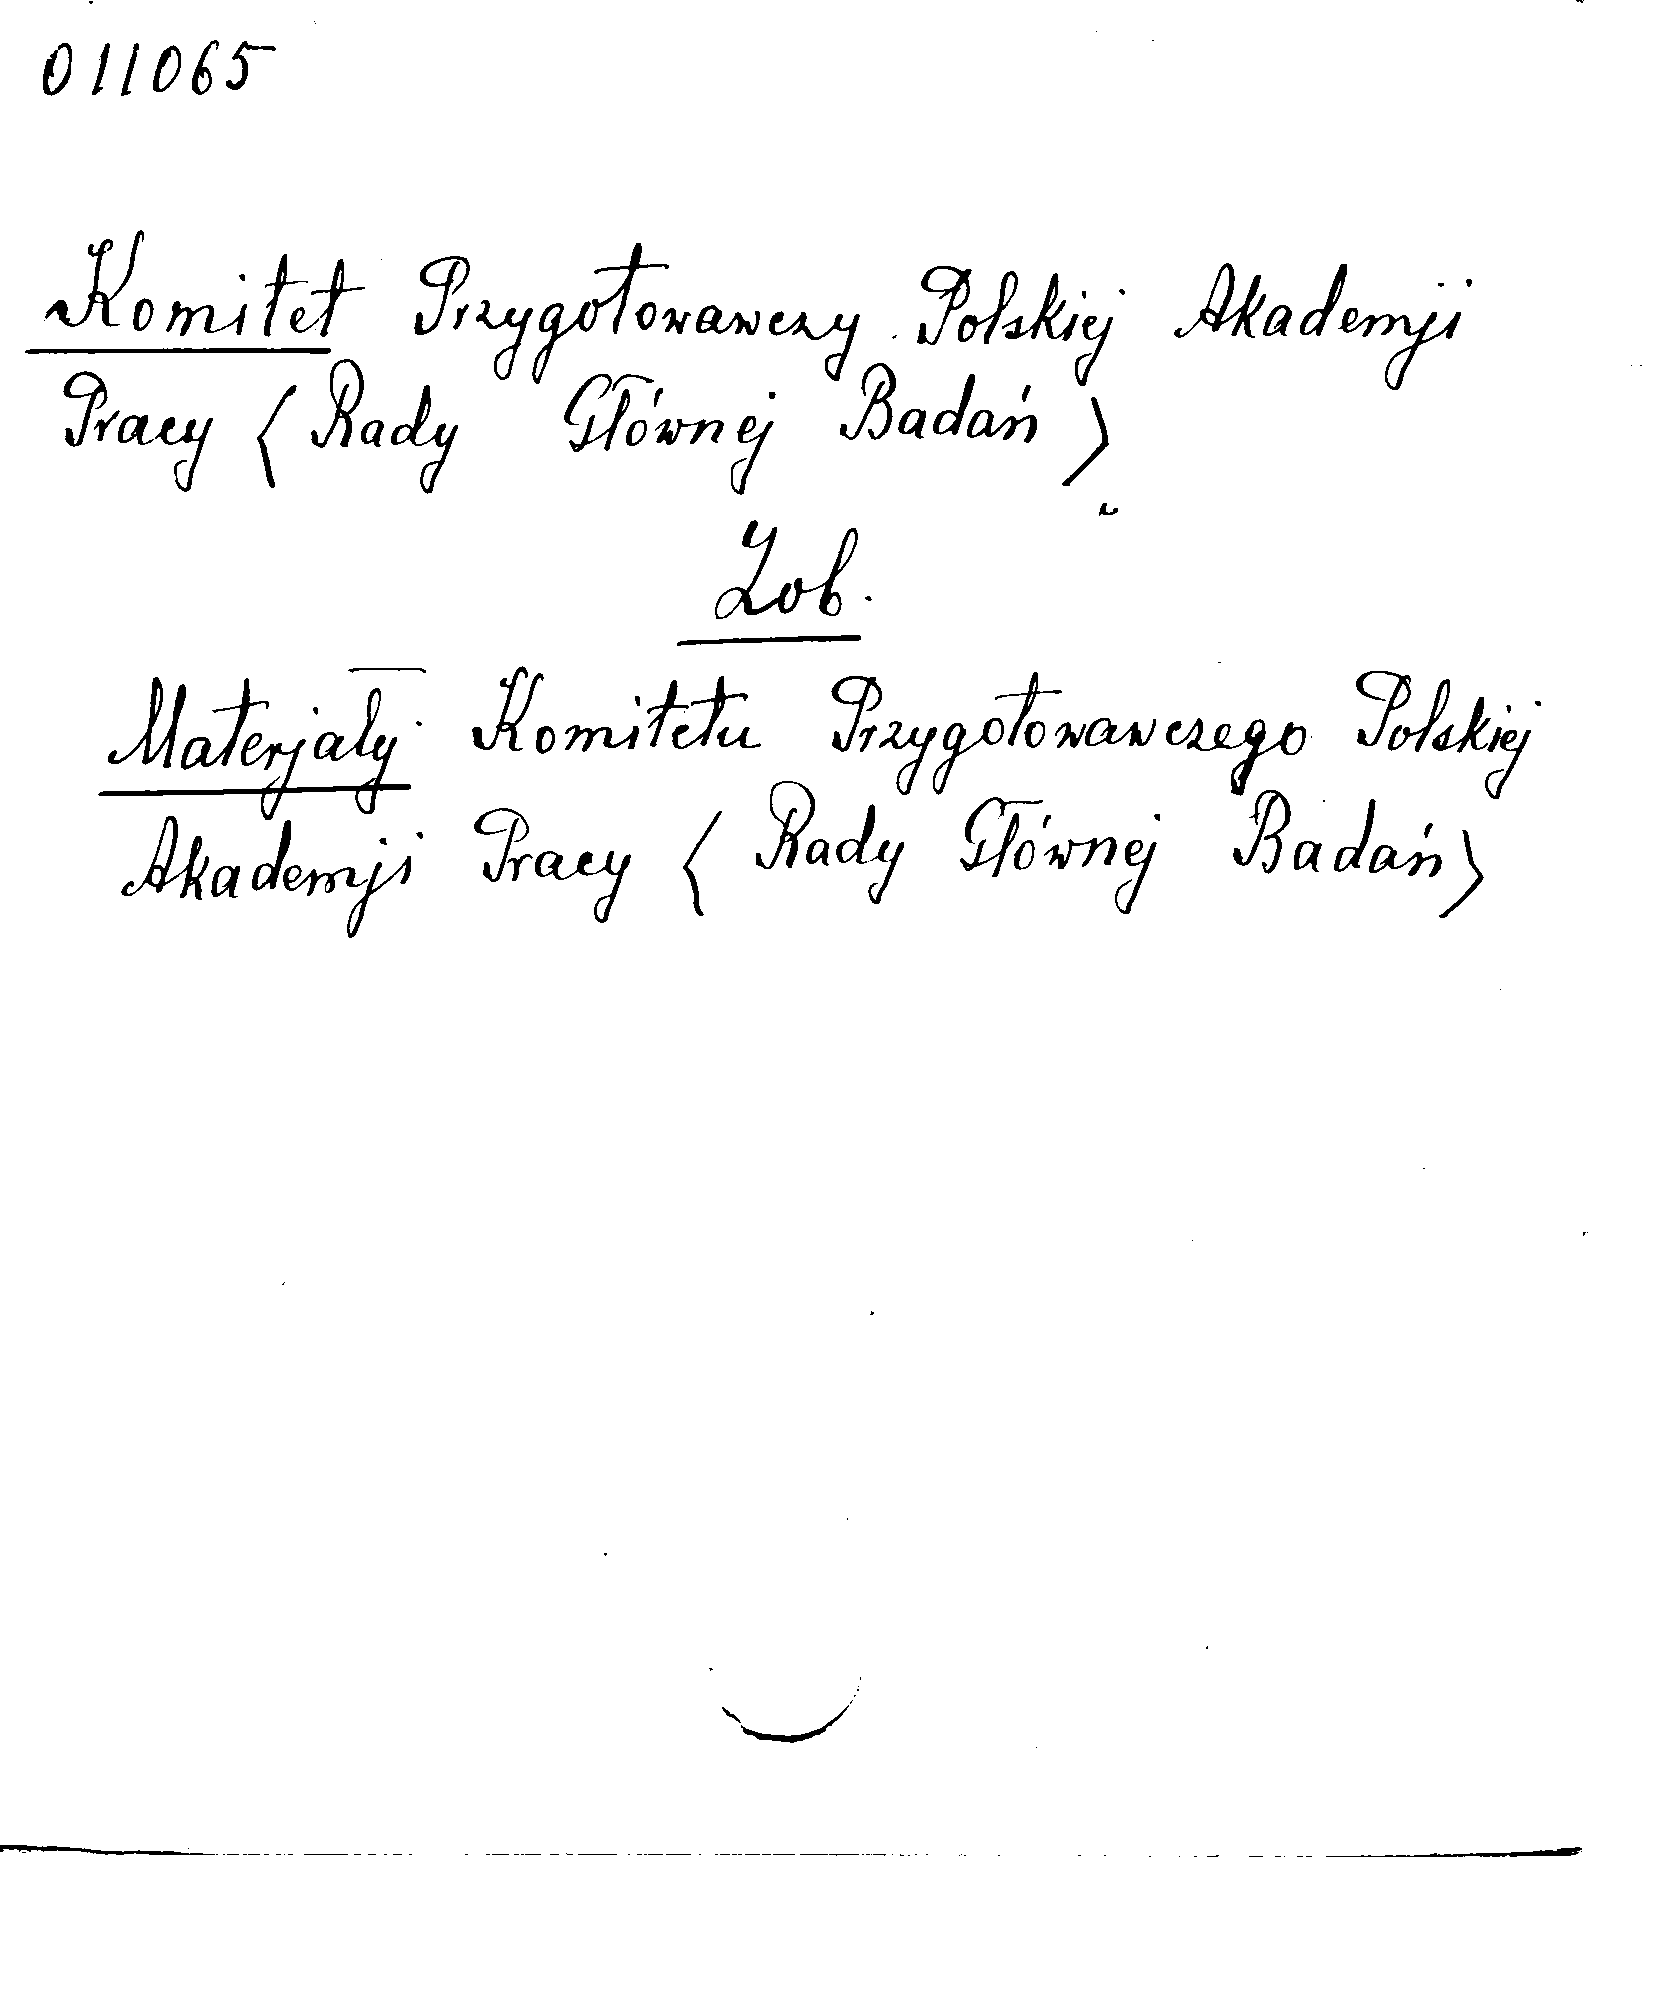 011065
Komitet Przygotowawczy Polskiej Akademji
Pracy ⟨Rady Głównej Badań⟩
Zob.
Materjały Komitetu Przygotowawczego Polskiej
Akademji Pracy ⟨Rady Głównej Badań⟩